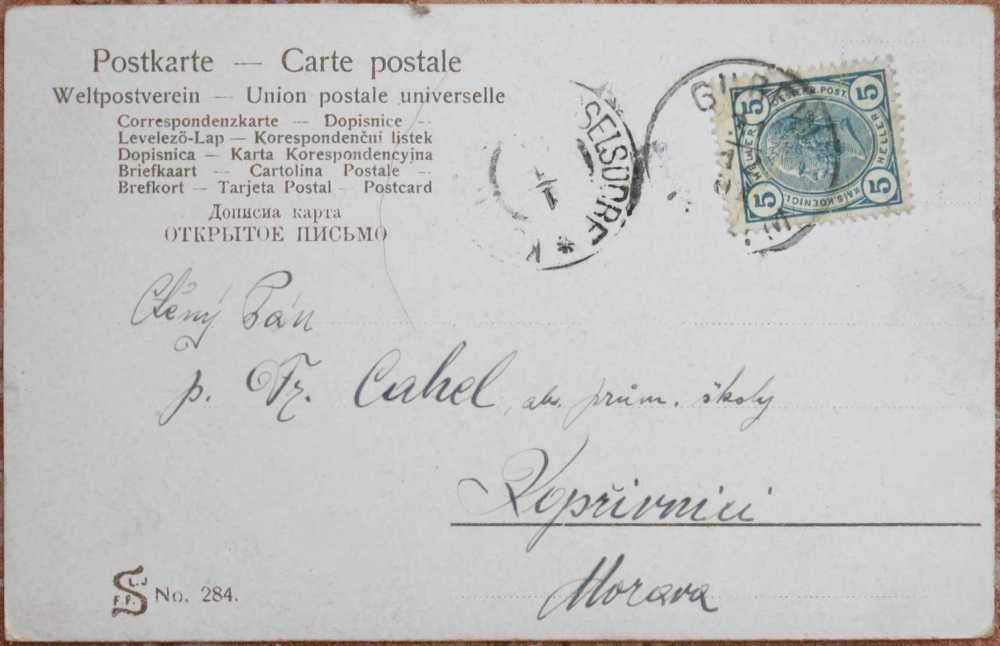 Postkarte — Carte postale
Weltpostverein — Union postale universelle
Correspondenzkarte — Dopisnice —
Levelező-Lap — Korespondenční lístek
Dopisnica — Karta Korespondencyjna
Briefkaart — Cartolina Postale —
Brefkort — Tarjeta Postal — Postcard
Дописна карта
ОТКРЫТОЕ ПИСЬМО
SELSDORF * K
5 5 5 5
HELLER
KAIS. KOENIGL.
Ctěný Pán
p. Fr. Cahel, ab. prům. školy
Kopřivnici
Morava
No. 284.